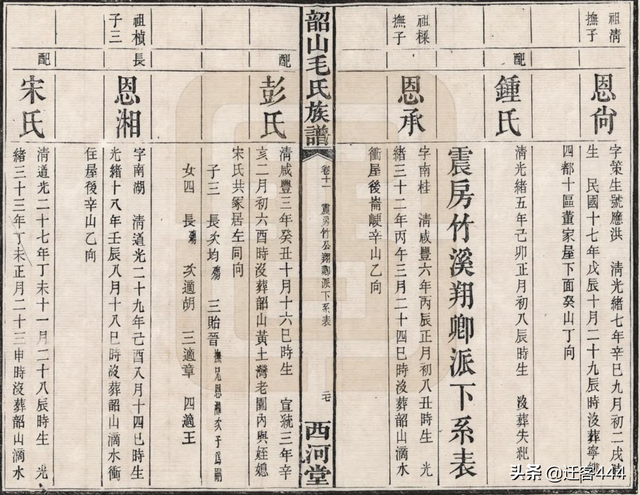 祖清撫子
恩尙
字策生號應洪　清光緒七年辛巳九月初二戌時
生　民國十七年戊辰十月二十九辰時沒葬寧鄉
四都十區董家屋下面癸山丁向
配
鍾氏
清光緒五年己卯正月初八辰時生　沒葬失紀
震房竹溪翔卿派下系表
祖樑撫子
恩承
字南桂　清咸豐六年丙辰正月初八丑時生　光
緒三十二年丙午三月二十四巳時沒葬韶山滴水
衝屋後崙峽辛山乙向
韶山毛氏族譜
卷十一　震房竹公翔卿派下系表
西河堂
配
彭氏
清咸豐三年癸丑十月十六巳時生　宣統三年辛
亥二月初六酉時沒葬韶山黃土灣老園內與姪媳
宋氏共冢居左同向
子三　長　次均殤　三貽晉撫兄恩湘次子爲嗣
女四　長殤　次適胡　三適章　四適王
祖楨長子三
恩湘
字南湖　清道光二十九年己酉八月十四巳時生
光緒十八年壬辰八月十八巳時沒葬韶山滴水衝
住屋後辛山乙向
配
宋氏
清道光二十七年丁未十一月二十八辰時生　光
緒三十三年丁未正月二十三申時沒葬韶山滴水
头条 @迁客444